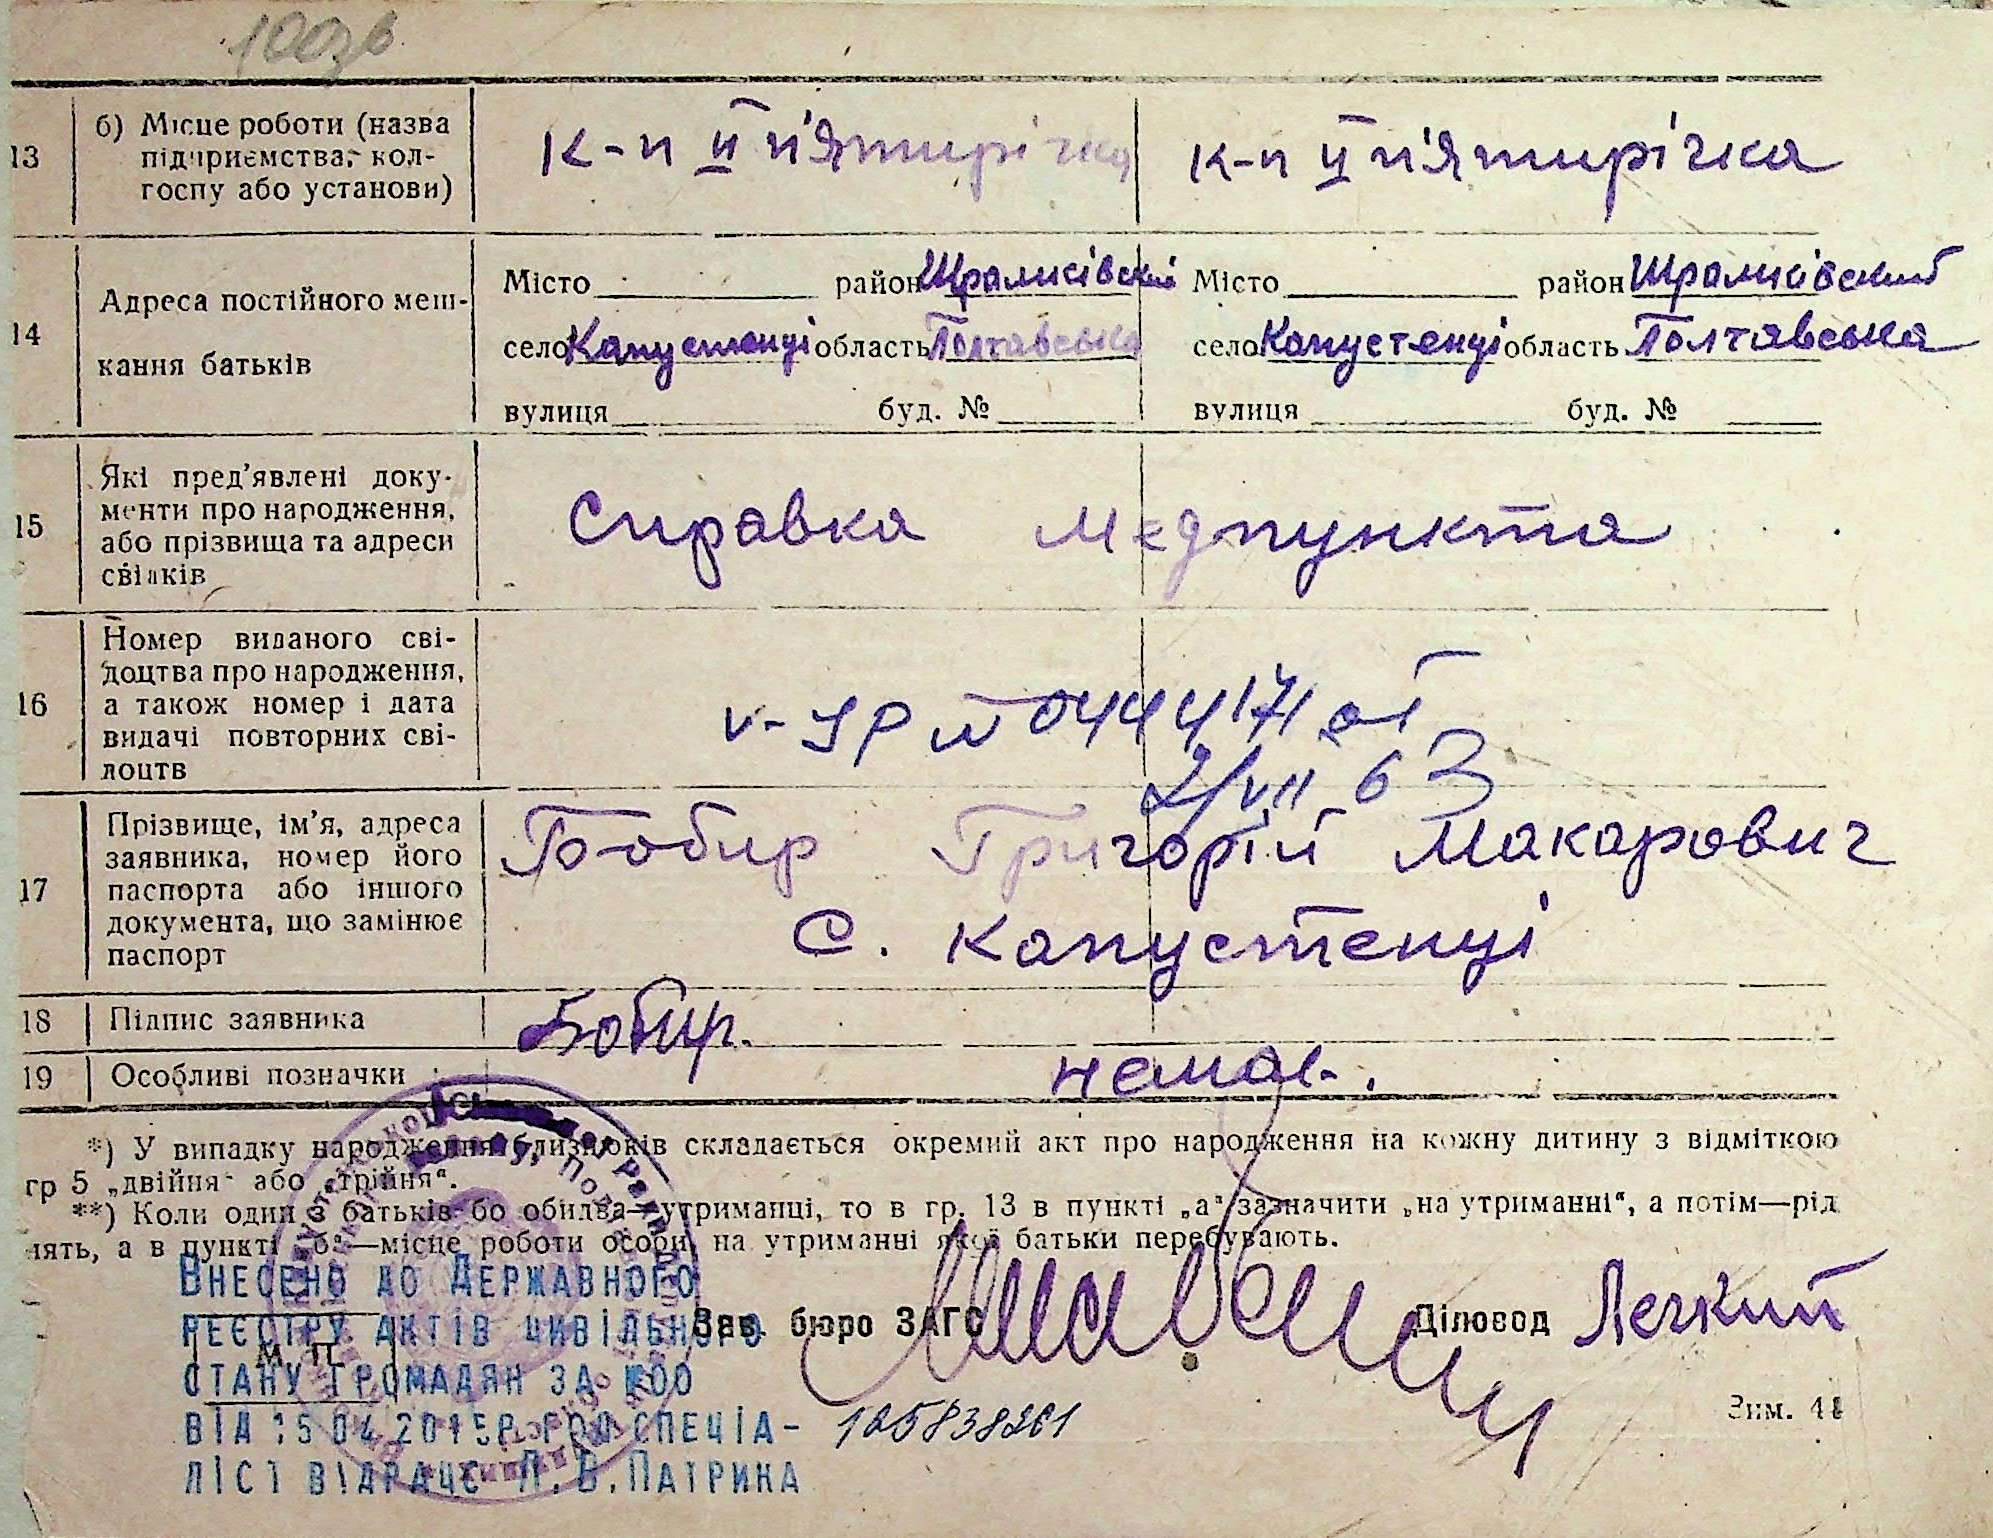 100зв
13 б) Місце роботи (назва
підприємства, кол-
госпу або установи)
к-п ІІ п'ятирічка
к-п ІІ п'ятирічка
14 Адреса постійного меш-
кання батьків
Місто район Шрамківский
село Капустенці область Полтавська
вулиця буд. №
Місто район Шрамківский
село Капустенці область Полтавська
вулиця буд. №
15 Які пред'явлені доку-
менти про народження,
або прізвища та адреси
свідків
Справка медпункта
16 Номер виданого сві-
доцтва про народження,
а також номер і дата
видачі повторних сві-
доцтв
V-УР № 0444171 от
2/VII 63
17 Прізвище, ім'я, адреса
заявника, номер його
паспорта або іншого
документа, що замінює
паспорт
Бобир Григорій Макарович
с. Капустенці
18 Підпис заявника
Бобир.
19 Особливі позначки
немає.
*) У випадку народження близнюків складається окремий акт про народження на кожну дитину з відміткою
гр 5 „двійня“ або „трійня“.
**) Коли один з батьків бо обидва—утриманці, то в гр. 13 в пункті „а“ зазначити „на утриманні“, а потім—рід
нять, а в пункті „б“—місце роботи особи, на утриманні якої батьки перебувають.
Внесено до Державного
реєстру актів цивільного
стану громадян за №00
від 15 04 2015р. спеціа-
ліст відрацс Л.В.Патрика
125838261
М П
Зав. бюро ЗАГС
Діловод Легкий
Зим. 41